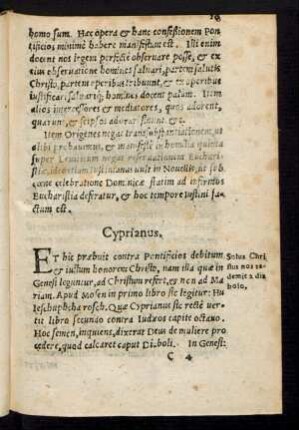 homo sum. Hac opera & hanc confessionem Pon
tificios minimè habere manifestum est. Illi enim
docent nos legem perfectè observare posse, & ex
eius observatione homines salvari, partem salutis
Christo, partem operibus tribuunt, & ex operibus
iustificari, salvarique homines docent palam. Item
alios intercessores et mediatores, quos adorent,
quærunt, & seipsos adorari sinunt. &c.
Item Origenes negat transsubstantiationem, ut
alibi probavimus, & manifestè in homilia quinta
super Leviticum negat reservationem Euchari-
stiæ, idem etiam Iustinianus vult in Novellis, ut
celebratione Dominicæ statim ad infirmos
Eucharistia deferatur, & hoc tempore Iustini fa-
ctum est.
Cyprianus.
ET hic præbuit contra Pontificios debitum
& iustum honorem Christo, nam illa quæ in
Genesi leguntur, ad Christum refert, et non ad Ma
riam. Apud Mosen in primo libro sic legitur: Hu
Ieschuphcha rosch. Quæ Cyprianus sic rectè ver-
tit libro secundo contra Iudæos capite octavo.
Hoc semen, inquiens, dixerat Deus de muliere pro
cedere, quod calcaret caput Diaboli. In Genesi:
Solus Chri
stus nos re-
demit a dia
bolo.
C 4